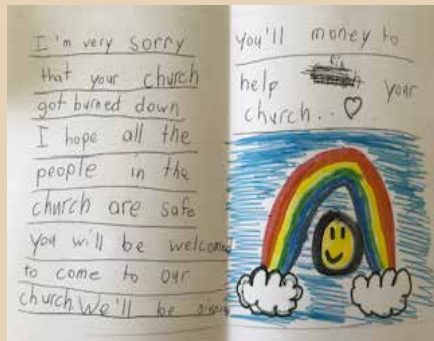 I'm very sorry
that your church
got burned down
I hope all the
people in the
church are safe
you will be welcomed
to come to our
church We'll be
you'll money to
help your
church.. ♡